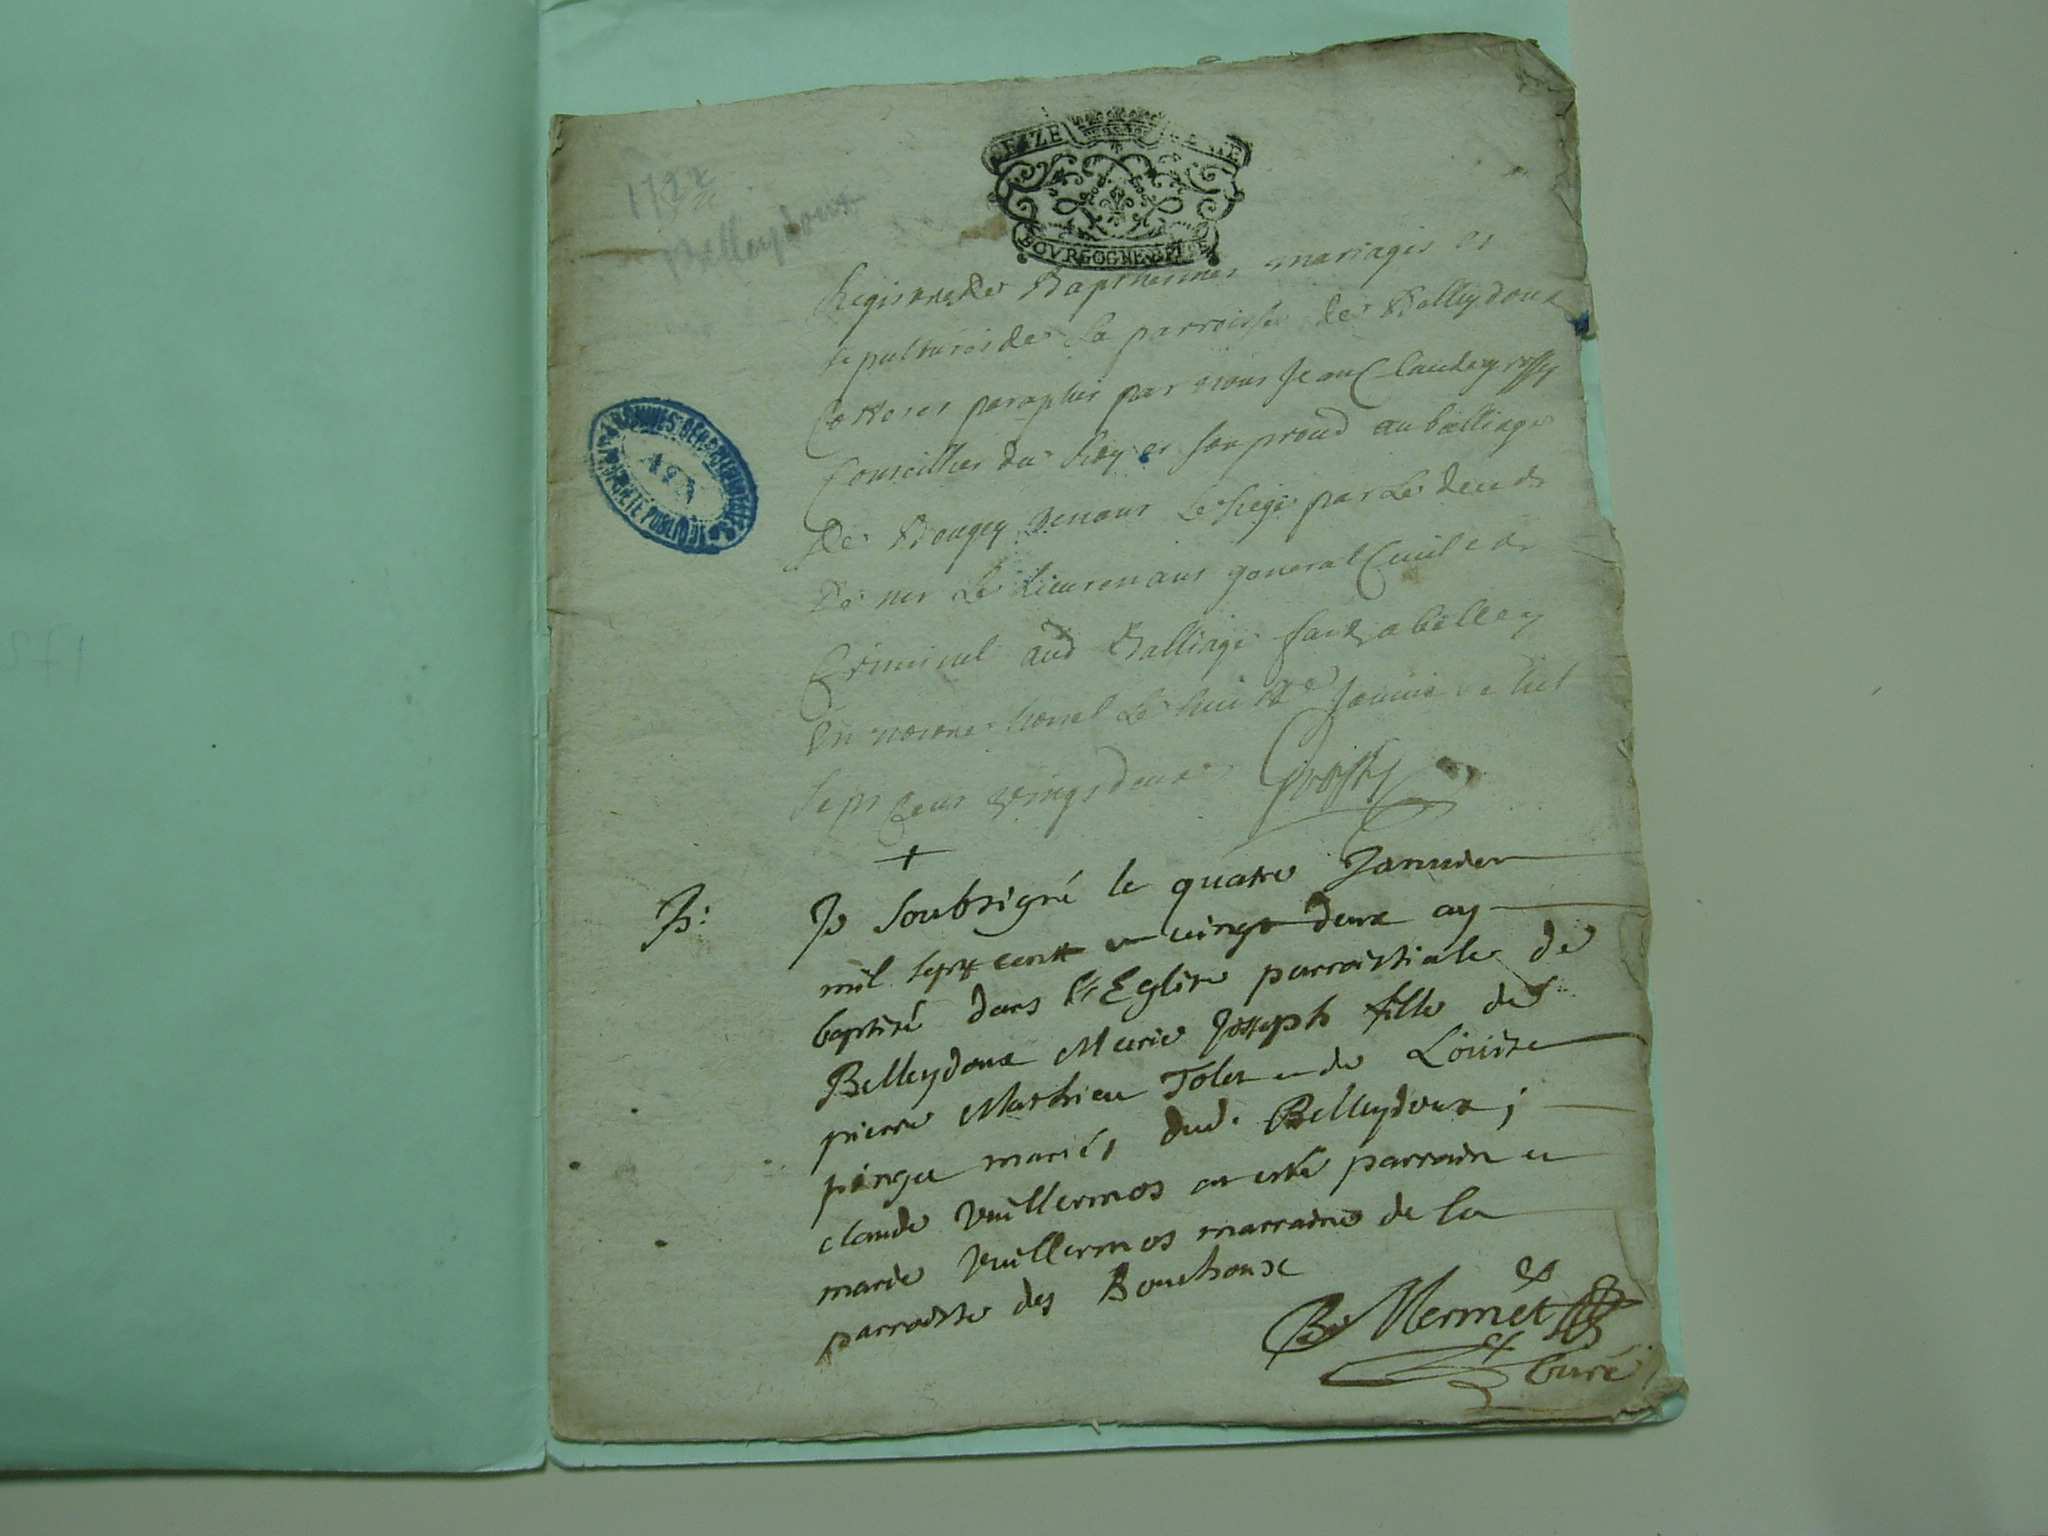 1722
Belleydoux
SEIZE
BOVRGOGNE BRESSE
Registre de Baptesmes mariages et
sepultures de la parroisse de Belleydoux
Cotté et paraphé par nous Jean Claude Grossy
Conseiller du Roy et son
de Bougey tenant le siege par le
le lieutenant general Civil et
Criminel aud Balliage a belley
en nostre hostel le huit Janvier mil
sept Cent vingt deux Grossy
ARCHIVES DEPARTEMENTALES
AIN
PROPRIETE PUBLIQUE
+
B: Je Soubsigné le quatre Januier
mil sept cent et vingt deux ay
baptisé dans l'Eglise parroissiale de
Belleydoux Marie Joseph fille de
pierre Mathieu Tolet et de Louise
pinget mariés dud. Belleydoux ;
claude Vuillermos at esté parrain et
marie Vuillermos marraine de la
parroisse des Bouchoux
Mermet
Curé